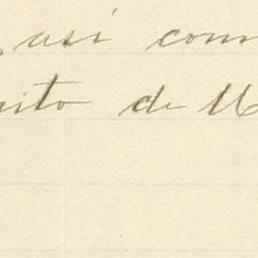 así com
ito de M